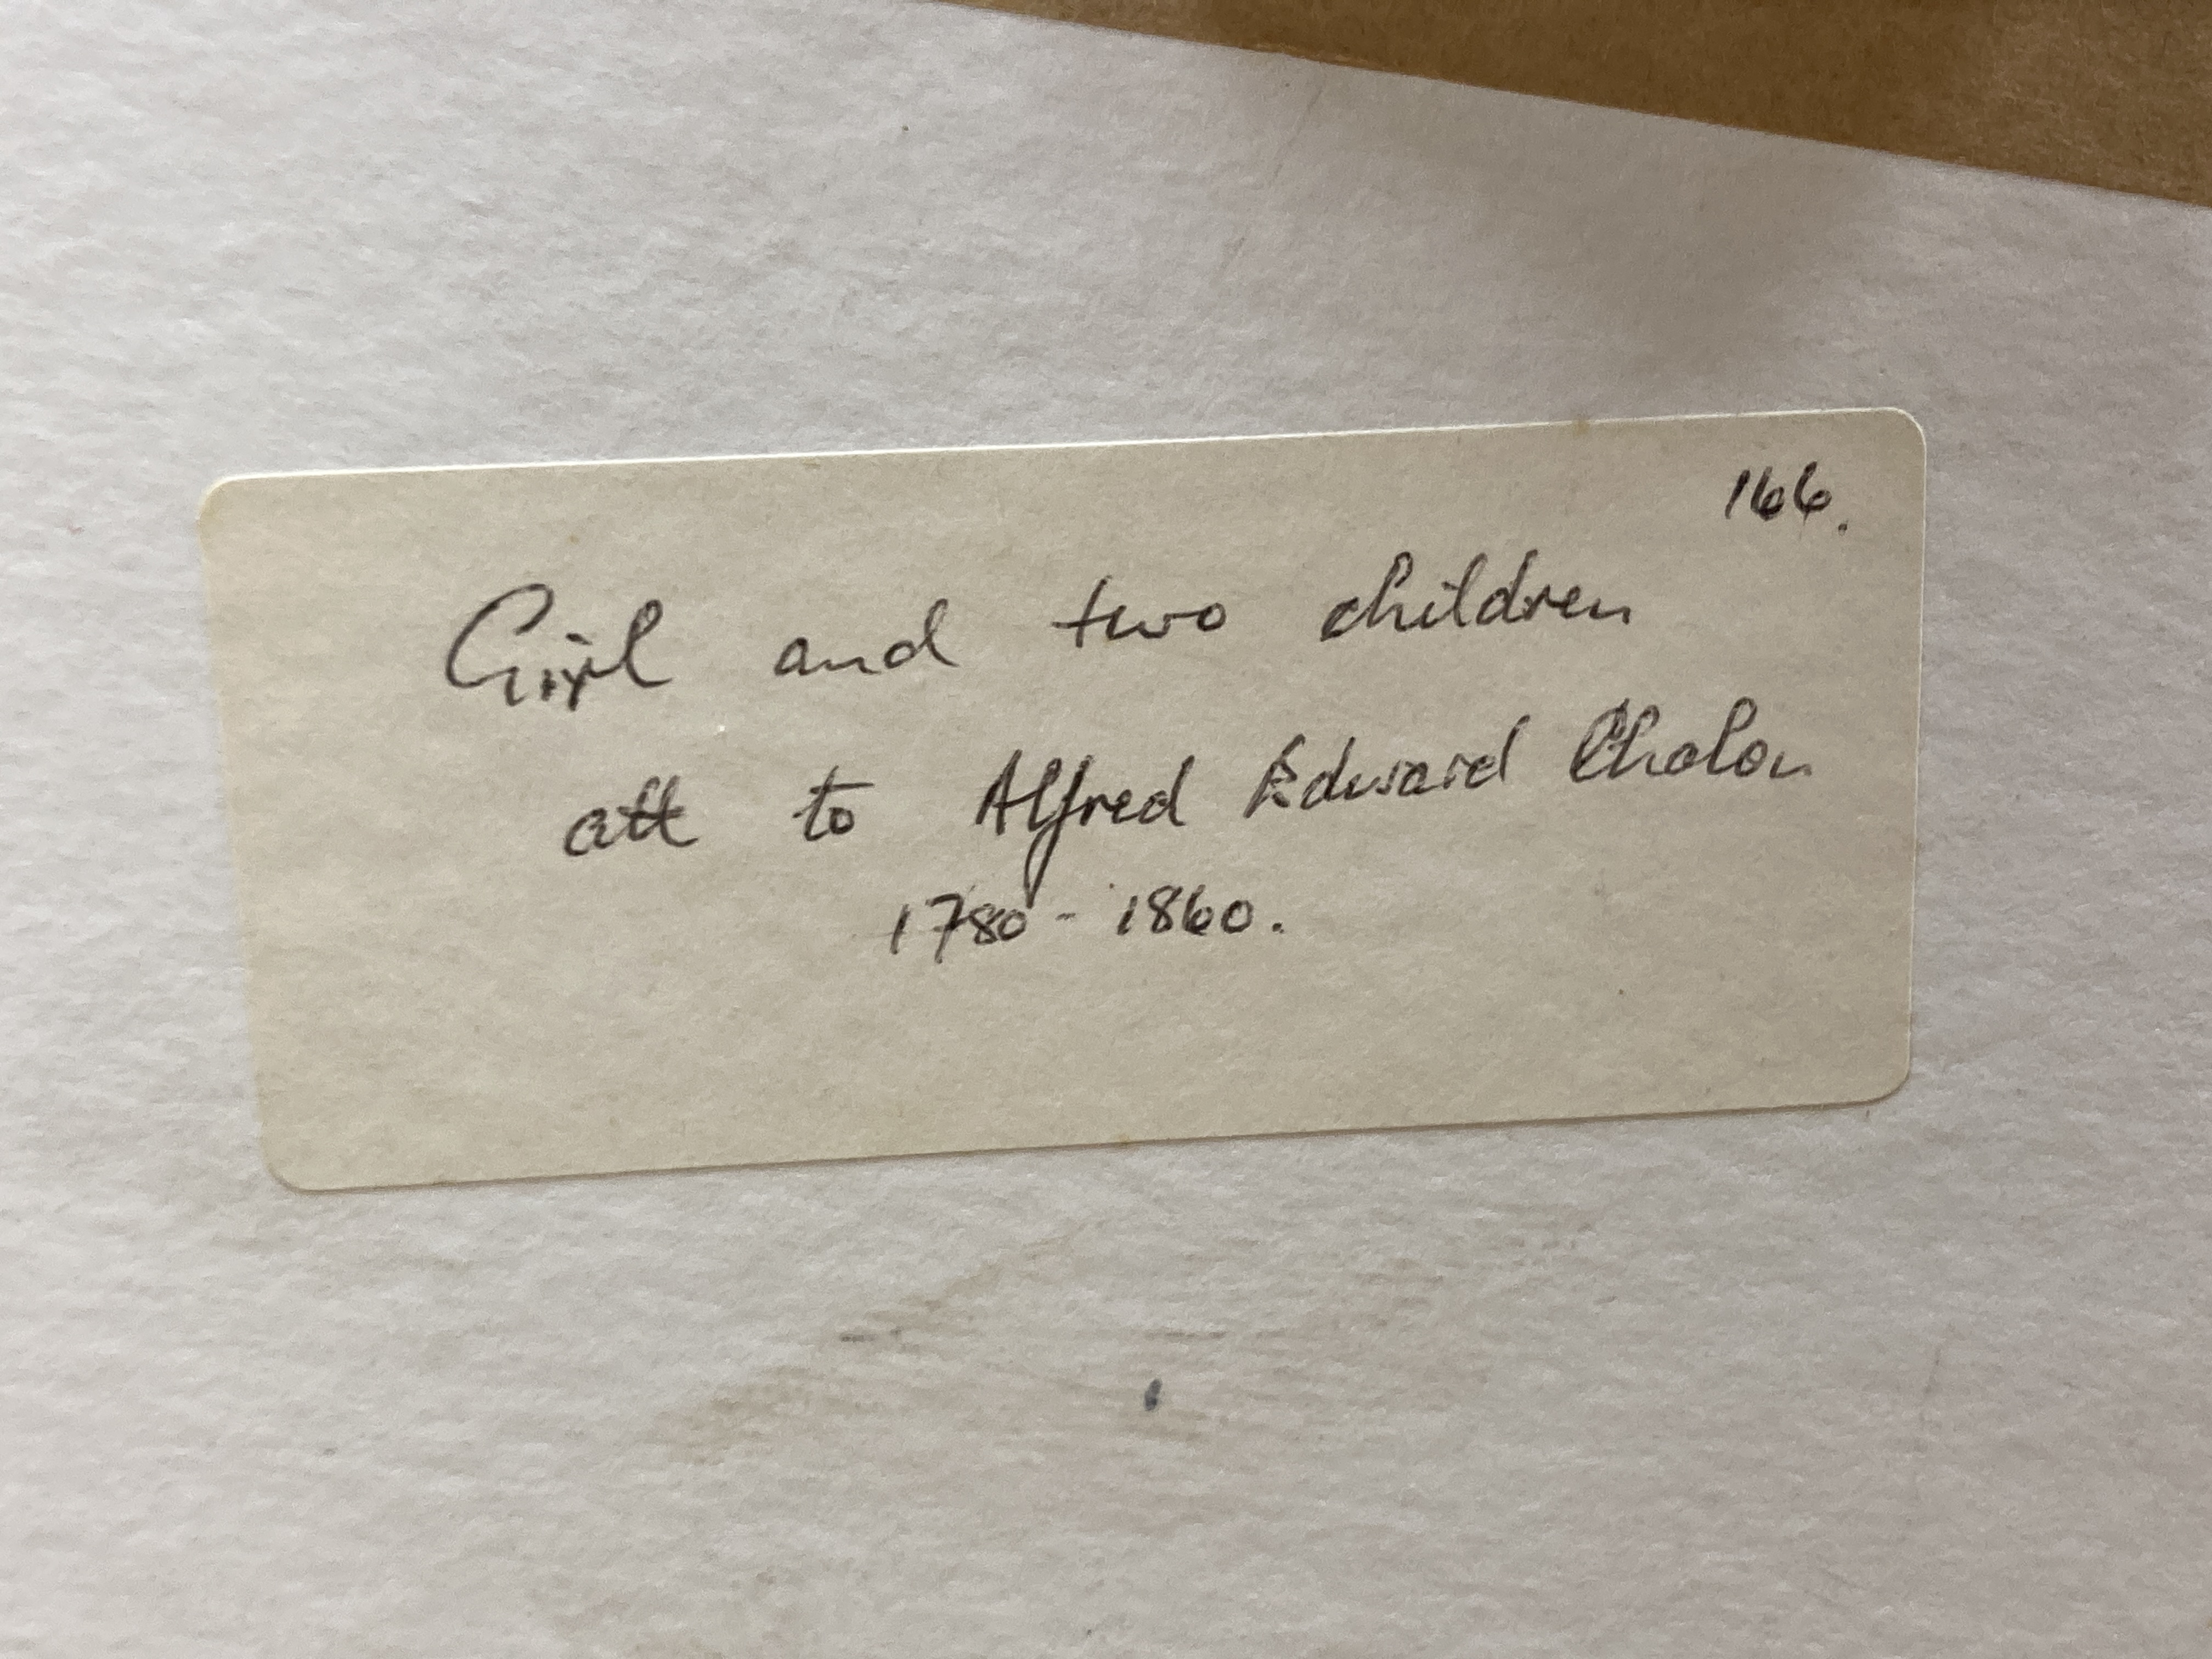 166.
Girl and two children
att to Alfred Edward Chalon
1780 - 1860.